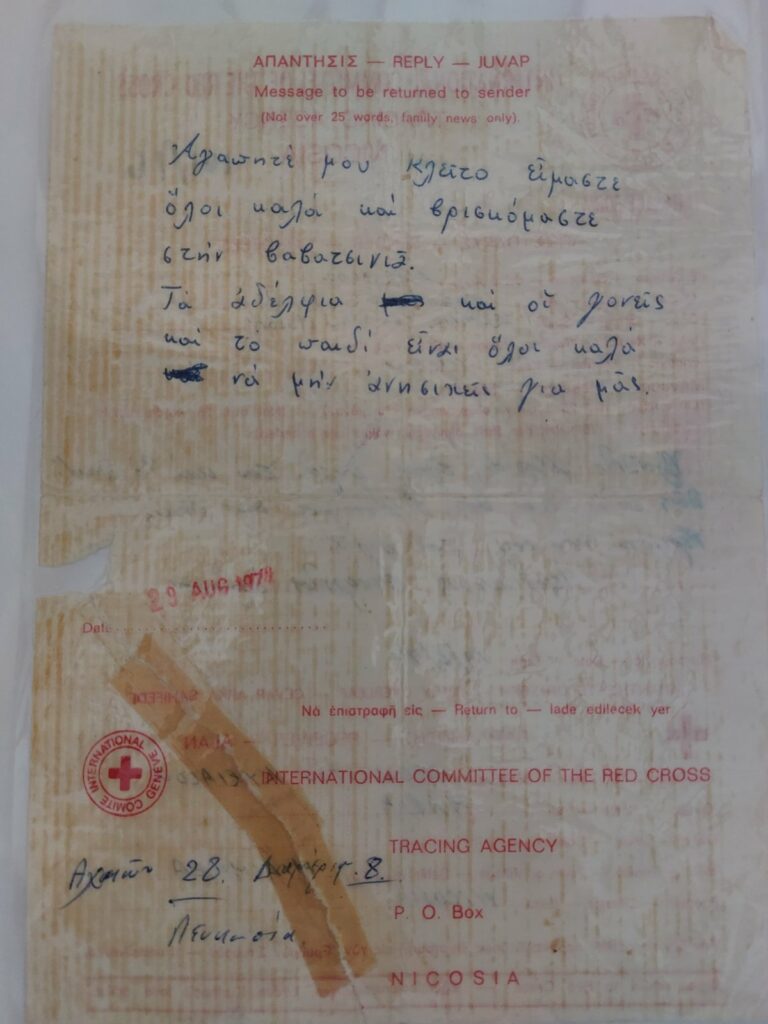 ΑΠΑΝΤΗΣΙΣ — REPLY — JUVAP
Message to be returned to sender
(Not over 25 words, family news only).
Ἀγαπητέ μου Κλεῖτο εἴμαστε
ὅλοι καλά καί βρισκόμαστε
στήν βαβατσινιᾶ.
Τά ἀδέλφια καί οἱ γονεῖς
καί τό παιδί εἶναι ὅλοι καλά
νά μήν ἀνησιχεῖς για μᾶς.
29 AUG 1974
Date
Νὰ ἐπιστραφῆ εἰς — Return to — Iade edilecek yer
COMITÉ INTERNATIONAL GENEVE
INTERNATIONAL COMMITTEE OF THE RED CROSS
TRACING AGENCY
Αχαιών 28. 8.
P. O. Box
Λευκωσία
NICOSIA